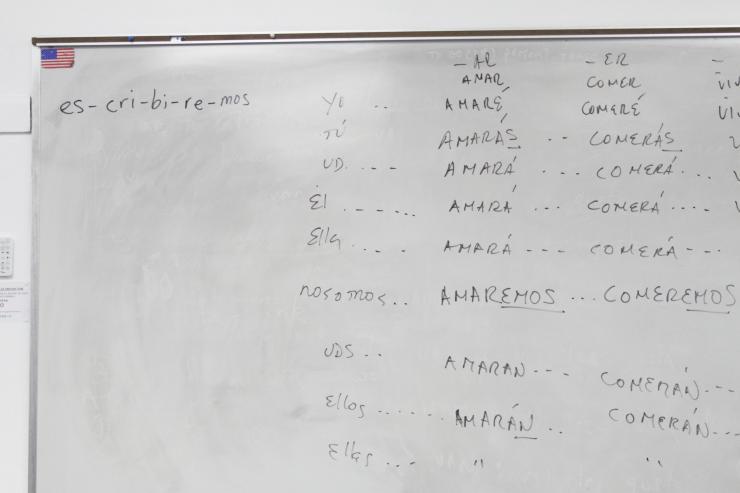 - AR - ER -
AMAR COMER
es-cri-bi-re-mos YO .. AMARÉ COMERÉ
TÚ AMARÁS .. COMERÁS
UD. ... AMARÁ ... COMERÁ...
Él ...... AMARÁ ... COMERÁ....
Ella .... AMARÁ --- COMERÁ ---
nosotros.. AMAREMOS ... COMEREMOS
UDS .. AMARAN --- COMERÁN.--
Ellos ...... AMARÁN .. COMERÁN...
Ellas ... " "